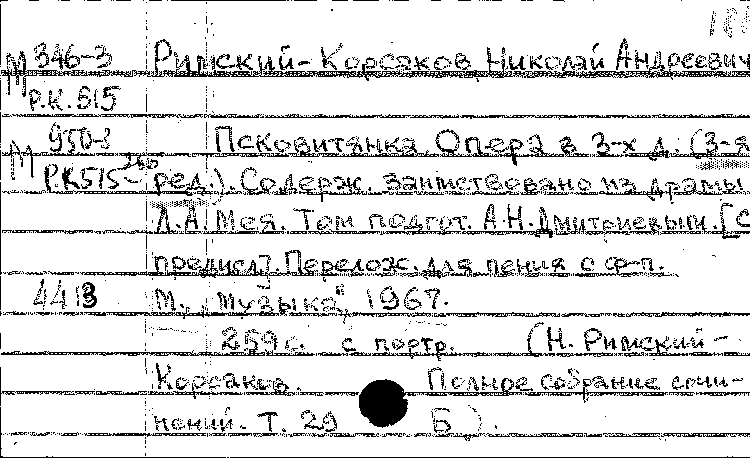 М 346-3 Римский-Корсаков, Николай Андреевич
Р.К.515
М 950-3 Псковитянка. Опера в 3-х д. (3-я
Р.К515- ред.). Содерж. заимствовано из драмы
Л.А. Мея. Том подгот. А.Н. Дмитриевым. [С
предисл]. Перелож. для пения с ф-п.
4413 М., "Музыка", 1967.
259 с. с портр. (Н. Римский-
Корсаков. Полное собрание сочи-
нений. Т. 29 Б).